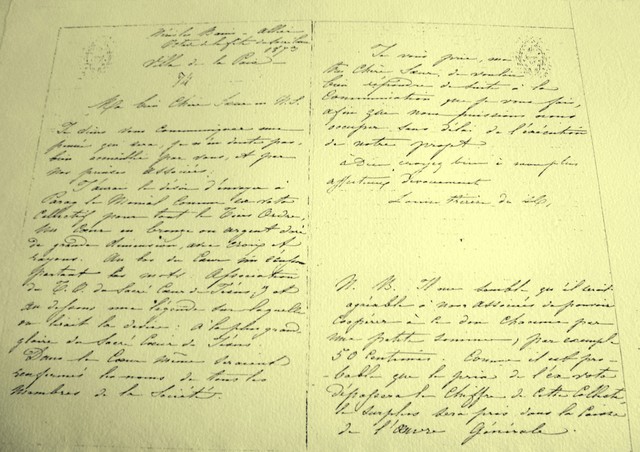 Néris les Bains - Allier
Octave de la fête du Sacré Cœur
1873
Ville de la Paix
74
Ma bien Chère Sœur en N. S.
Je viens vous communiquer une
pensée qui sera, je n'en doute pas,
bien accueillie par vous, et par
nos pieuses Associées.
J'aurais le désir d'envoyer à
Paray le Monial comme ex-voto
Collectif pour tout le Tiers Ordre,
un Cœur en bronze ou argent doré
de grande dimension, avec croix et
rayons. Au bas du Cœur
portant les mots. Association
du T. O. du Sacré Cœur de Jésus, et
au dessous une légende sur laquelle
on lirait la devise : A la plus grande
gloire du Sacré Cœur de Jésus.
Dans le Cœur même seraient
renfermés les noms de tous les
Membres de la Société.
Je vous prie, ma
très Chère Sœur, de vouloir
bien répondre de suite à la
Communication que je vous fais,
afin que nous puissions nous
occuper sans délai de l'exécution
de notre projet.
à Dieu croyez bien à mon plus
affectueux dévouement
Louise Thérèse de
N. B. Il me semble qu'il serait
agréable à nos Associés de pouvoir
Coopérer à ce don chacune par
une petite somme, par exemple
50 Centimes. Comme il est pro-
bable que le prix de l'ex-voto
dépassera le Chiffre de Cette Collecte,
le surplus sera pris dans la Caisse
de l'œuvre Générale.